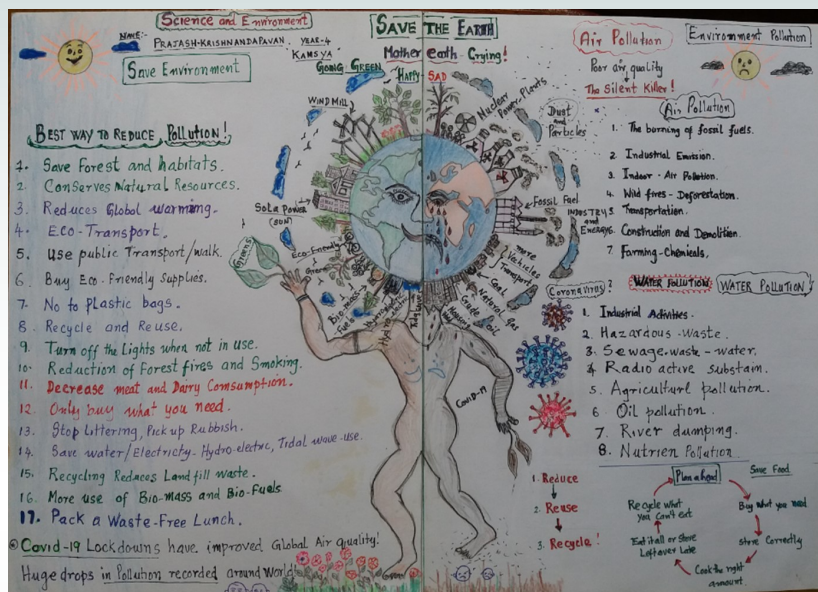 Science and Environment
NAME:-
PRAJASH-KRISHNANDAPAVAN. YEAR-4
KAMSYA
Save Environment
SAVE THE EARTH
Mother earth Crying!
GOING GREEN
HAPPY-SAD
Air Pollution
Poor air quality
The Silent Killer!
Environment Pollution
BEST WAY TO REDUCE, Pollution!
1. Save Forest and habitats.
2. Conserves Natural Resources.
3. Reduces Global warming.
4. ECO-Transport.
5. Use public Transport/walk.
6. Buy Eco-Friendly Supplies.
7. No to Plastic bags.
8. Recycle and Reuse.
9. Turn off the Lights when not in use.
10. Reduction of Forest fires and Smoking.
11. Decrease meat and Dairy Comsumption.
12. Only buy what you need.
13. Stop Littering, Pick up Rubbish.
14. Save water/Electricty-Hydro-electric, Tidal wave-use.
15. Recycling Reduces Landfill waste.
16. More use of Bio-mass and Bio-Fuels
17. Pack a Waste-Free Lunch.
Covid-19 Lockdowns have improved Global Air quality!
Huge drops in Pollution recorded around World!
WINDMILL
Sola Power
(SUN)
Greens
Eco-Friendly
Bio-mass
Fuels
Nuclear
Power-Plants
Dust
and
Particles
Fossil Fuel
INDUSTRY
and
ENERGY
more
Vehicles
Transport
Gas
Natural gas
Crude oil
Covid-19
Coronavirus?
Air Pollution
1. The burning of fossil fuels.
2. Industrial Emission.
3. Indoor-Air Pollution.
4. Wild fires-Deforestation.
5. Transportation.
6. Construction and Demolition.
7. Farming-Chemicals.
WATER POLLUTION
WATER POLLUTION
1. Industrial Activities.
2. Hazardous-Waste.
3. Sewage.waste-water.
4. Radio active substain.
5. Agriculture pollution.
6. Oil pollution.
7. River dumping.
8. Nutrien Pollution
1. Reduce
2. Reuse
3. Recycle!
Plan ahead
Save Food
Buy what you need
Store Correctly
Cook the right
amount.
Eat it all or Store
Leftover Late
Recycle what
you Can't eat